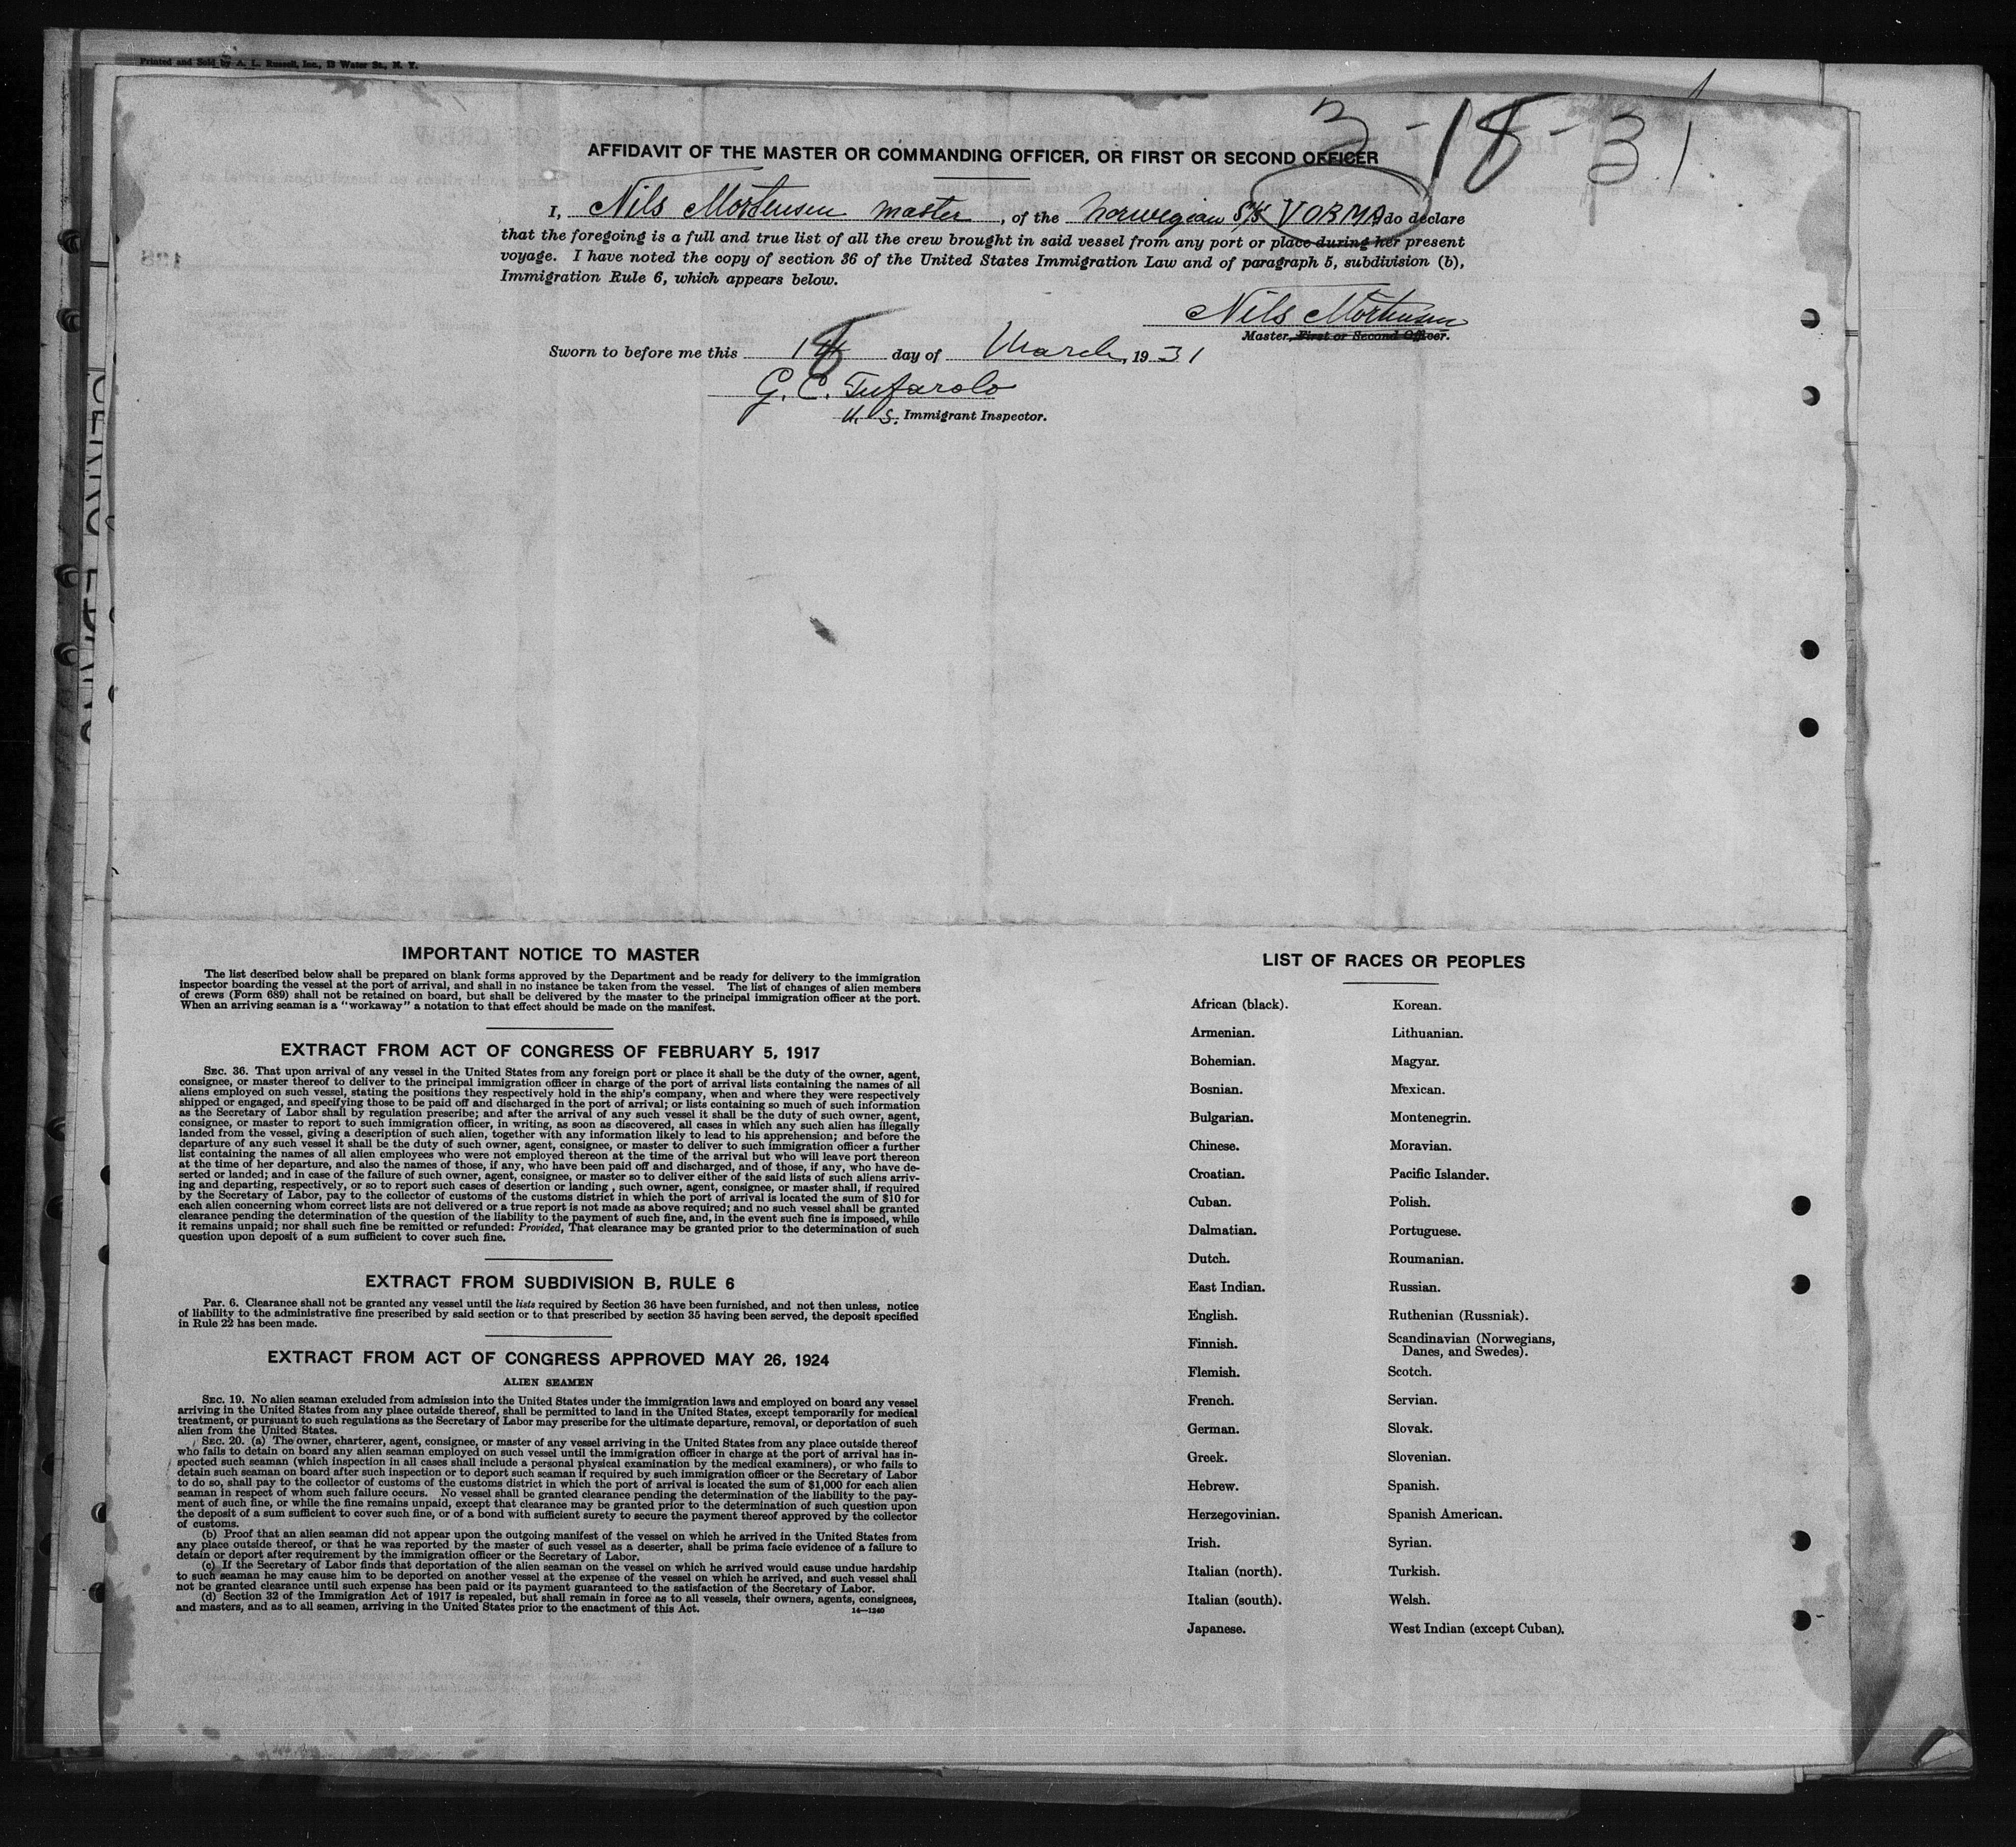 Printed and Sold by A. L. Russell, Inc., 13 Water St., N. Y.
3-18-31
AFFIDAVIT OF THE MASTER OR COMMANDING OFFICER, OR FIRST OR SECOND OFFICER
I, Nils Mortensen master, of the Norwegian S/S VORMA do declare
that the foregoing is a full and true list of all the crew brought in said vessel from any port or place during her present
voyage. I have noted the copy of section 36 of the United States Immigration Law and of paragraph 5, subdivision (b),
Immigration Rule 6, which appears below.
Nils Mortensen
Master, First or Second Officer.
Sworn to before me this 18 day of March, 1931
G. C. Tufarolo
U. S. Immigrant Inspector.
IMPORTANT NOTICE TO MASTER
The list described below shall be prepared on blank forms approved by the Department and be ready for delivery to the immigration
inspector boarding the vessel at the port of arrival, and shall in no instance be taken from the vessel. The list of changes of alien members
of crews (Form 689) shall not be retained on board, but shall be delivered by the master to the principal immigration officer at the port.
When an arriving seaman is a "workaway" a notation to that effect should be made on the manifest.
EXTRACT FROM ACT OF CONGRESS OF FEBRUARY 5, 1917
SEC. 36. That upon arrival of any vessel in the United States from any foreign port or place it shall be the duty of the owner, agent,
consignee, or master thereof to deliver to the principal immigration officer in charge of the port of arrival lists containing the names of all
aliens employed on such vessel, stating the positions they respectively hold in the ship's company, when and where they were respectively
shipped or engaged, and specifying those to be paid off and discharged in the port of arrival; or lists containing so much of such information
as the Secretary of Labor shall by regulation prescribe; and after the arrival of any such vessel it shall be the duty of such owner, agent,
consignee, or master to report to such immigration officer, in writing, as soon as discovered, all cases in which any such alien has illegally
landed from the vessel, giving a description of such alien, together with any information likely to lead to his apprehension; and before the
departure of any such vessel it shall be the duty of such owner, agent, consignee, or master to deliver to such immigration officer a further
list containing the names of all alien employees who were not employed thereon at the time of the arrival but who will leave port thereon
at the time of her departure, and also the names of those, if any, who have been paid off and discharged, and of those, if any, who have de-
serted or landed; and in case of the failure of such owner, agent, consignee, or master so to deliver either of the said lists of such aliens arriv-
ing and departing, respectively, or so to report such cases of desertion or landing , such owner, agent, consignee, or master shall, if required
by the Secretary of Labor, pay to the collector of customs of the customs district in which the port of arrival is located the sum of $10 for
each alien concerning whom correct lists are not delivered or a true report is not made as above required; and no such vessel shall be granted
clearance pending the determination of the question of the liability to the payment of such fine, and, in the event such fine is imposed, while
it remains unpaid; nor shall such fine be remitted or refunded: Provided, That clearance may be granted prior to the determination of such
question upon deposit of a sum sufficient to cover such fine.
EXTRACT FROM SUBDIVISION B, RULE 6
Par. 6. Clearance shall not be granted any vessel until the lists required by Section 36 have been furnished, and not then unless, notice
of liability to the administrative fine prescribed by said section or to that prescribed by section 35 having been served, the deposit specified
in Rule 22 has been made.
EXTRACT FROM ACT OF CONGRESS APPROVED MAY 26, 1924
ALIEN SEAMEN
SEC. 19. No alien seaman excluded from admission into the United States under the immigration laws and employed on board any vessel
arriving in the United States from any place outside thereof, shall be permitted to land in the United States, except temporarily for medical
treatment, or pursuant to such regulations as the Secretary of Labor may prescribe for the ultimate departure, removal, or deportation of such
alien from the United States.
SEC. 20. (a) The owner, charterer, agent, consignee, or master of any vessel arriving in the United States from any place outside thereof
who fails to detain on board any alien seaman employed on such vessel until the immigration officer in charge at the port of arrival has in-
spected such seaman (which inspection in all cases shall include a personal physical examination by the medical examiners), or who fails to
detain such seaman on board after such inspection or to deport such seaman if required by such immigration officer or the Secretary of Labor
to do so, shall pay to the collector of customs of the customs district in which the port of arrival is located the sum of $1,000 for each alien
seaman in respect of whom such failure occurs. No vessel shall be granted clearance pending the determination of the liability to the pay-
ment of such fine, or while the fine remains unpaid, except that clearance may be granted prior to the determination of such question upon
the deposit of a sum sufficient to cover such fine, or of a bond with sufficient surety to secure the payment thereof approved by the collector
of customs.
(b) Proof that an alien seaman did not appear upon the outgoing manifest of the vessel on which he arrived in the United States from
any place outside thereof, or that he was reported by the master of such vessel as a deserter, shall be prima facie evidence of a failure to
detain or deport after requirement by the immigration officer or the Secretary of Labor.
(c) If the Secretary of Labor finds that deportation of the alien seaman on the vessel on which he arrived would cause undue hardship
to such seaman he may cause him to be deported on another vessel at the expense of the vessel on which he arrived, and such vessel shall
not be granted clearance until such expense has been paid or its payment guaranteed to the satisfaction of the Secretary of Labor.
(d) Section 32 of the Immigration Act of 1917 is repealed, but shall remain in force as to all vessels, their owners, agents, consignees,
and masters, and as to all seamen, arriving in the United States prior to the enactment of this Act.
14—1240
LIST OF RACES OR PEOPLES
African (black).
Armenian.
Bohemian.
Bosnian.
Bulgarian.
Chinese.
Croatian.
Cuban.
Dalmatian.
Dutch.
East Indian.
English.
Finnish.
Flemish.
French.
German.
Greek.
Hebrew.
Herzegovinian.
Irish.
Italian (north).
Italian (south).
Japanese.
Korean.
Lithuanian.
Magyar.
Mexican.
Montenegrin.
Moravian.
Pacific Islander.
Polish.
Portuguese.
Roumanian.
Russian.
Ruthenian (Russniak).
Scandinavian (Norwegians,
Danes, and Swedes).
Scotch.
Servian.
Slovak.
Slovenian.
Spanish.
Spanish American.
Syrian.
Turkish.
Welsh.
West Indian (except Cuban).